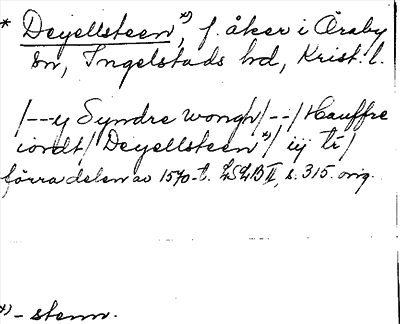 * Deyellsteen x), f. åker i Öraby
sn, Ingelstads hd, Krist. l.
/--y Syndre wongh/--/Hauffre
iordt/ Deyellsteen x)/ iij ti/
förra delen av 1570-t. LSLB II, s. 315. orig.
x) - stenn.